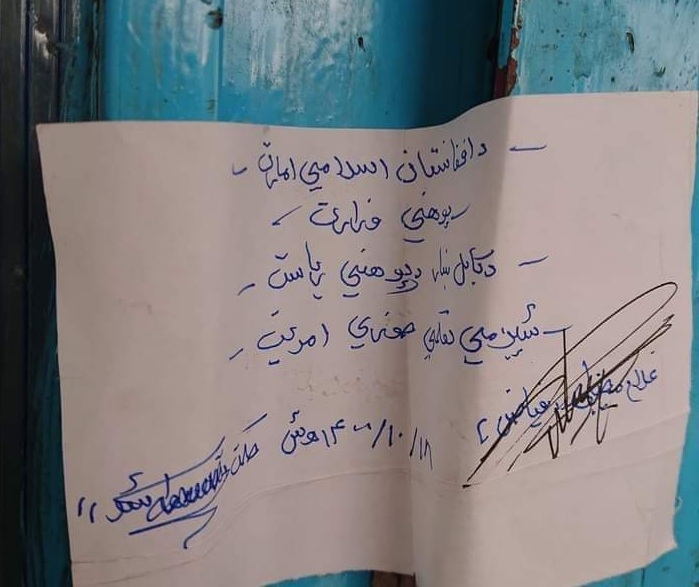 - دافغانستان اسلامي امارت -
پوهني وزارت -
- دکابل ښار د پوهني ریاست -
- شپږمي تعلیمي حوزي امریت -
غلام
۱۴۰۰/۱۰/۱۸ هـ ش